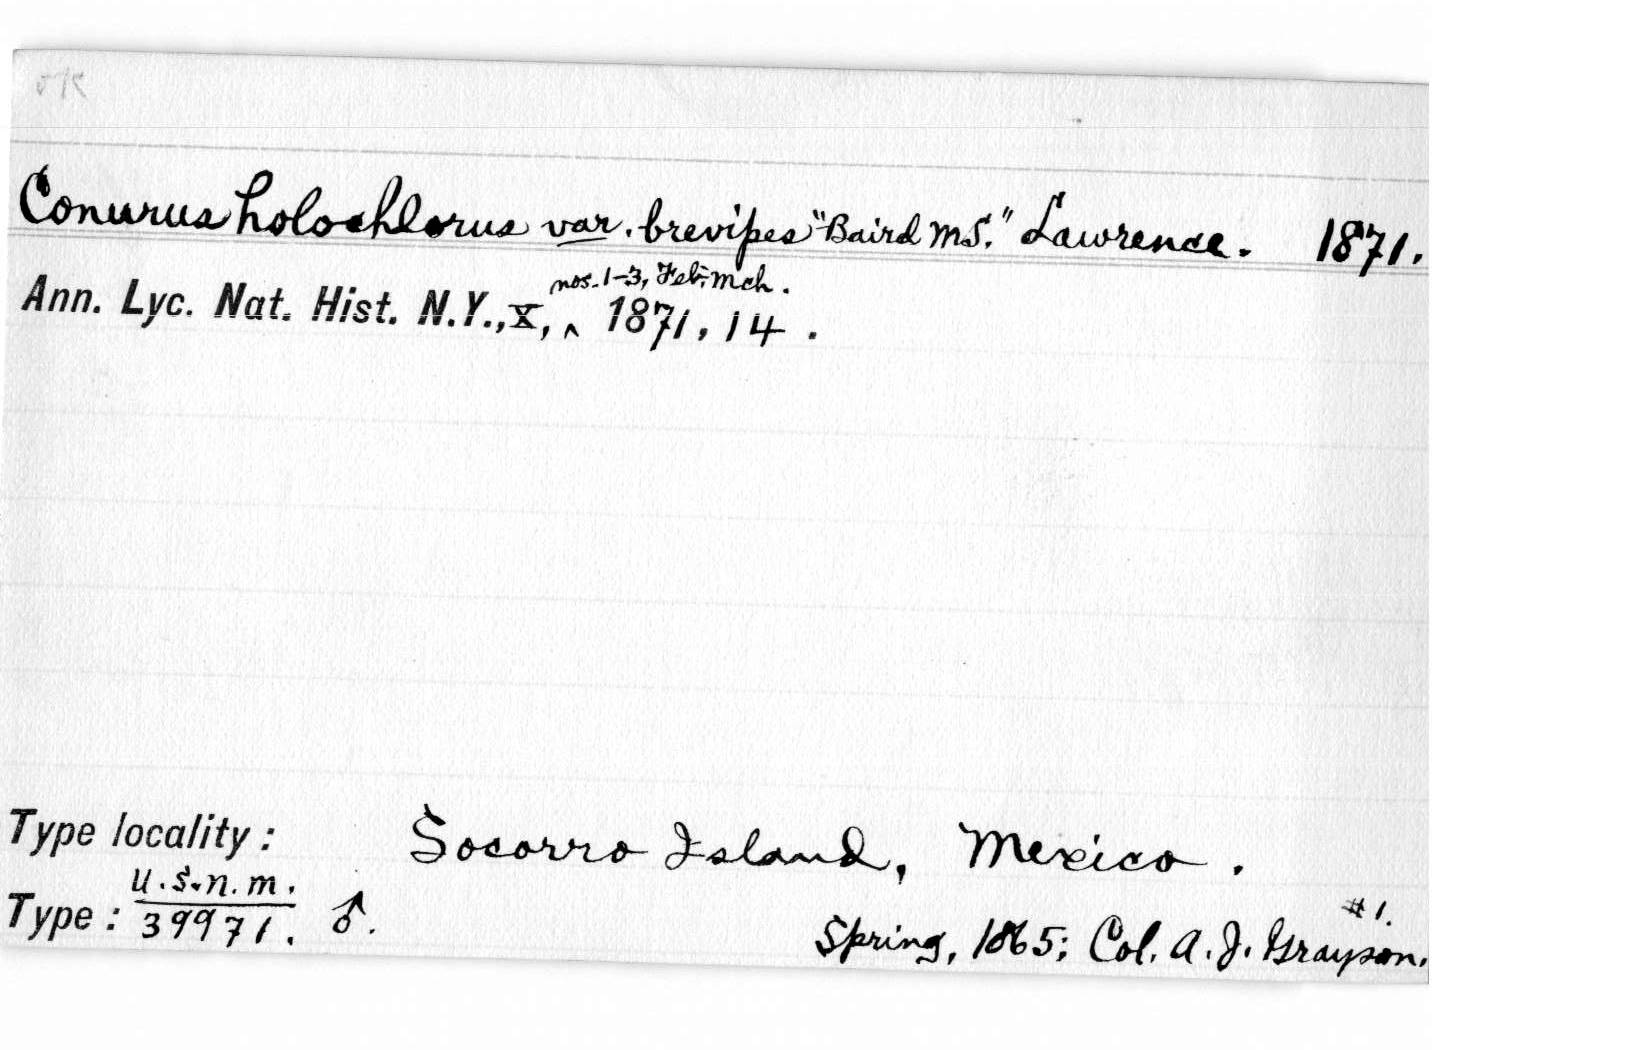 OK
Conurus holochlorus var. brevipes "Baird MS." Lawrence. 1871.
nos. 1-3, Feb.-Mch.
Ann. Lyc. Nat. Hist. N.Y., X, ^ 1871, 14.
Type locality: Socorro Island, Mexico.
U.S.N.M.
Type: 39971. ♂.
#1.
Spring, 1865; Col. A. J. Grayson.